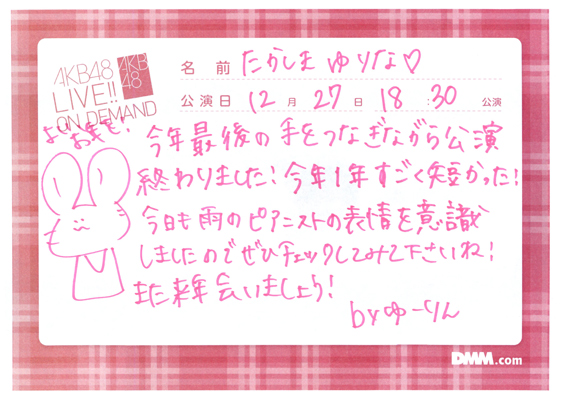 AKB48
LIVE!!
ON DEMAND
AKB
48
名前 たかしま ゆりな♡
公演日 12月27日 18:30 公演
よいお年を!
今年最後の手をつなぎながら公演
終わりました!今年1年すごく短かった!
今日も雨のピアニストの表情を意識
しましたのでぜひチェックしてみて下さいね!
また来年会いましょう!
byゆーりん
DMM.com